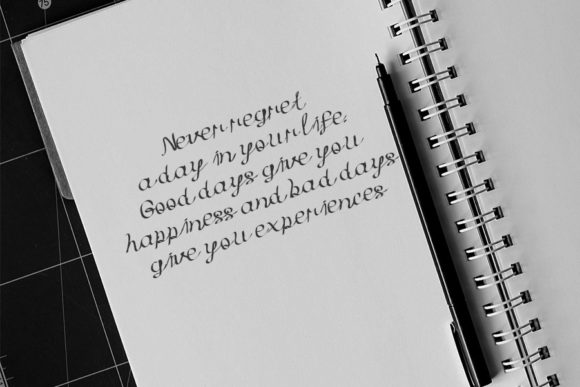 15
Never regret
a day in your life.
Good days give you
happiness and bad days
give you experiences